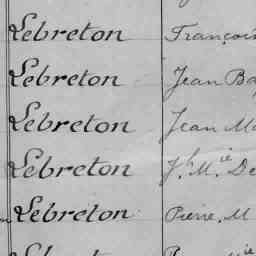 Lebreton François
Lebreton Jean Ba
Lebreton Jean Ma
Lebreton J.h M.ie De
Lebreton Pierre. M
Lebreton